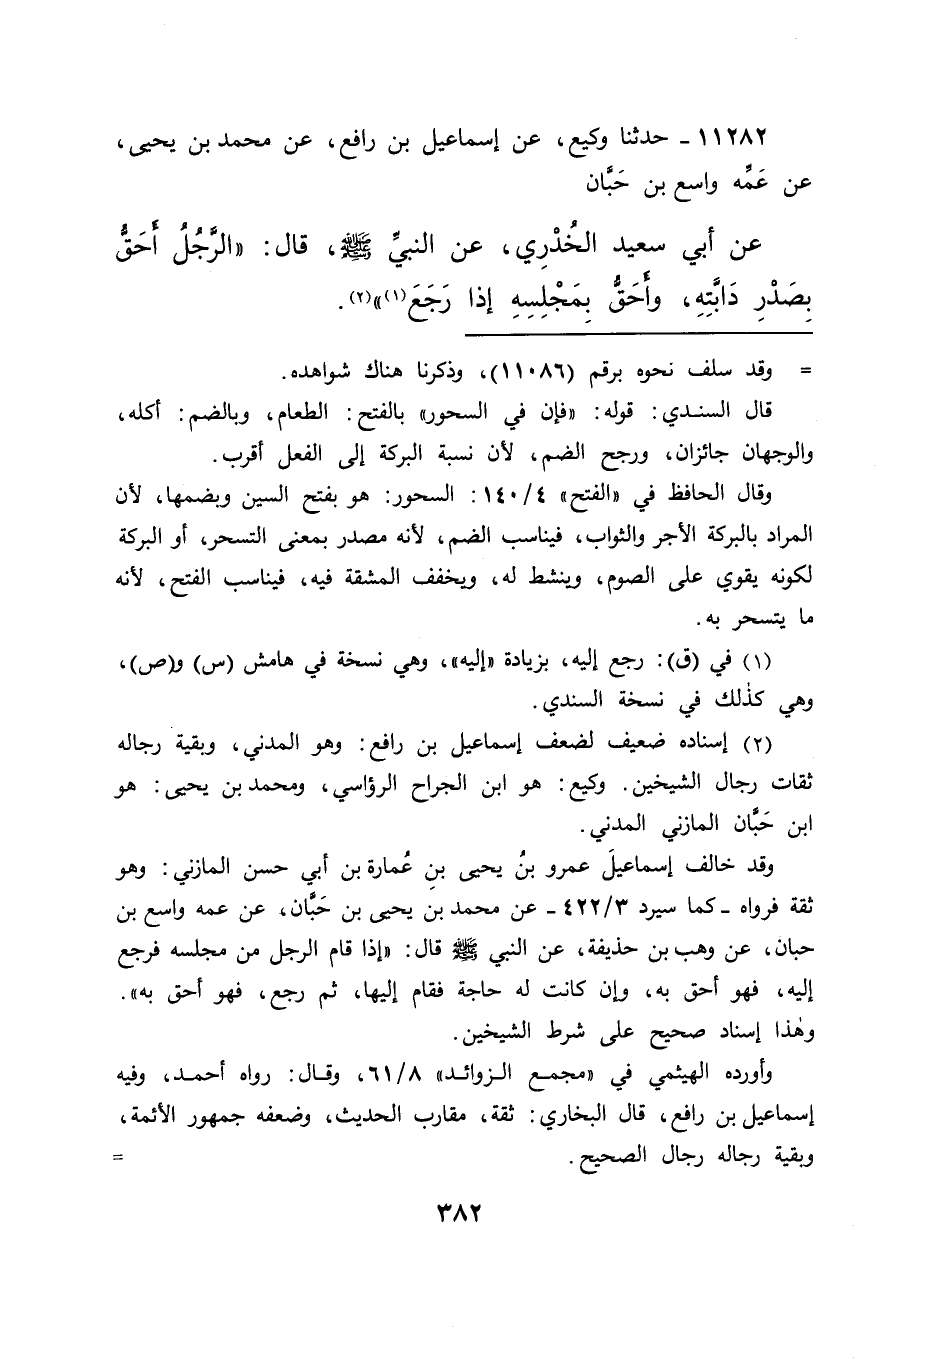 ١١٢٨٢ ـ حدثنا وكيع، عن إسماعيل بن رافع، عن محمد بن يحيى،
عن عَمِّه واسع بن حَبَّان
عن أبي سعيد الخُدْرِي، عن النبيِّ ﷺ، قال: «الرَّجُلُ أَحَقُّ
بِصَدْرِ دَابَّتِهِ، وأَحَقُّ بِمَجْلِسِهِ إذا رَجَعَ(١)»(٢).
= وقد سلف نحوه برقم (١١٠٨٦)، وذكرنا هناك شواهده.
قال السندي: قوله: «فإن في السحور» بالفتح: الطعام، وبالضم: أكله،
والوجهان جائزان، ورجح الضم، لأن نسبة البركة إلى الفعل أقرب.
وقال الحافظ في «الفتح» ١٤٠/٤: السحور: هو بفتح السين وبضمها، لأن
المراد بالبركة الأجر والثواب، فيناسب الضم، لأنه مصدر بمعنى التسحر، أو البركة
لكونه يقوي على الصوم، وينشط له، ويخفف المشقة فيه، فيناسب الفتح، لأنه
ما يتسحر به.
(١) في (ق): رجع إليه، بزيادة «إليه»، وهي نسخة في هامش (س) و(ص)،
وهي كذٰلك في نسخة السندي.
(٢) إسناده ضعيف لضعف إسماعيل بن رافع: وهو المدني، وبقية رجاله
ثقات رجال الشيخين. وكيع: هو ابن الجراح الرؤاسي، ومحمد بن يحيى: هو
ابن حَبَّان المازني المدني.
وقد خالف إسماعيلَ عمرو بنُ يحيى بنِ عُمارة بن أبي حسن المازني: وهو
ثقة فرواه ـ كما سيرد ٤٢٢/٣ ـ عن محمد بن يحيى بن حَبَّان، عن عمه واسع بن
حبان، عن وهب بن حذيفة، عن النبي ﷺ قال: «إذا قام الرجل من مجلسه فرجع
إليه، فهو أحق به، وإن كانت له حاجة فقام إليها، ثم رجع، فهو أحق به».
وهٰذا إسناد صحيح على شرط الشيخين.
وأورده الهيثمي في «مجمع الزوائد» ٦١/٨، وقال: رواه أحمد، وفيه
إسماعيل بن رافع، قال البخاري: ثقة، مقارب الحديث، وضعفه جمهور الأئمة،
وبقية رجاله رجال الصحيح. =
٣٨٢